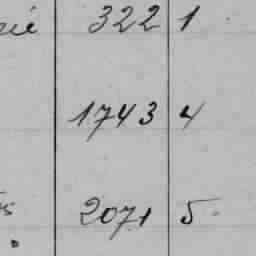 322 1
1743 4
2071 5